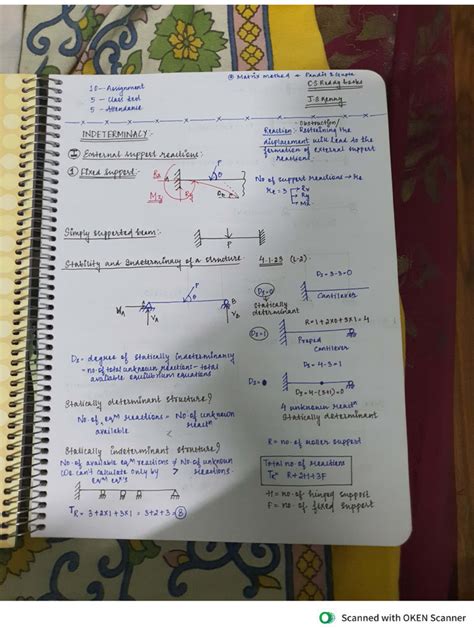 10 - Assignment
5 - Class test
5 - Attendance
⊛ Matrix method → Pandit & Gupta
C.S Reddy books
J.S Kenny
INDETERMINACY:-
Obstruction/
Reaction:- Restraining the
displacement will lead to the
formation of external support
reactions.
Ⓘ External support reactions:
① Fixed support:-
No of support reactions → Re
Re = 3
Rx
Ry
Mz
Simply supported beam:-
P
Stability and Indeterminacy of a structure 4.1.23 (L-2):-
Ds = 3-3=0
Ds=0
Cantilever
Statically
determinant
R=1+2×0+3×1=4
Ds=1
Proped
Cantilever
Ds = 4-3=1
Ds = 4-(3+1)=0
4 unknown
Statically determinant
Ds - degree of statically indeterminancy
- no. of total unknown reactions - total
available equilibrium equations
Statically determinant structure?
No. of eqn reactions = No of unknown
available
R = no. of roller support
Statically indeterminant structure?
No. of available eqn reactions ≠ No of unknown
We can't calculate only by > reactions.
Total no of reactions
R+2H+3F
H = no of hinged support
F = no. of fixed support
TR = 3+2×1+3×1 = 3+2+3 = 8
Scanned with OKEN Scanner